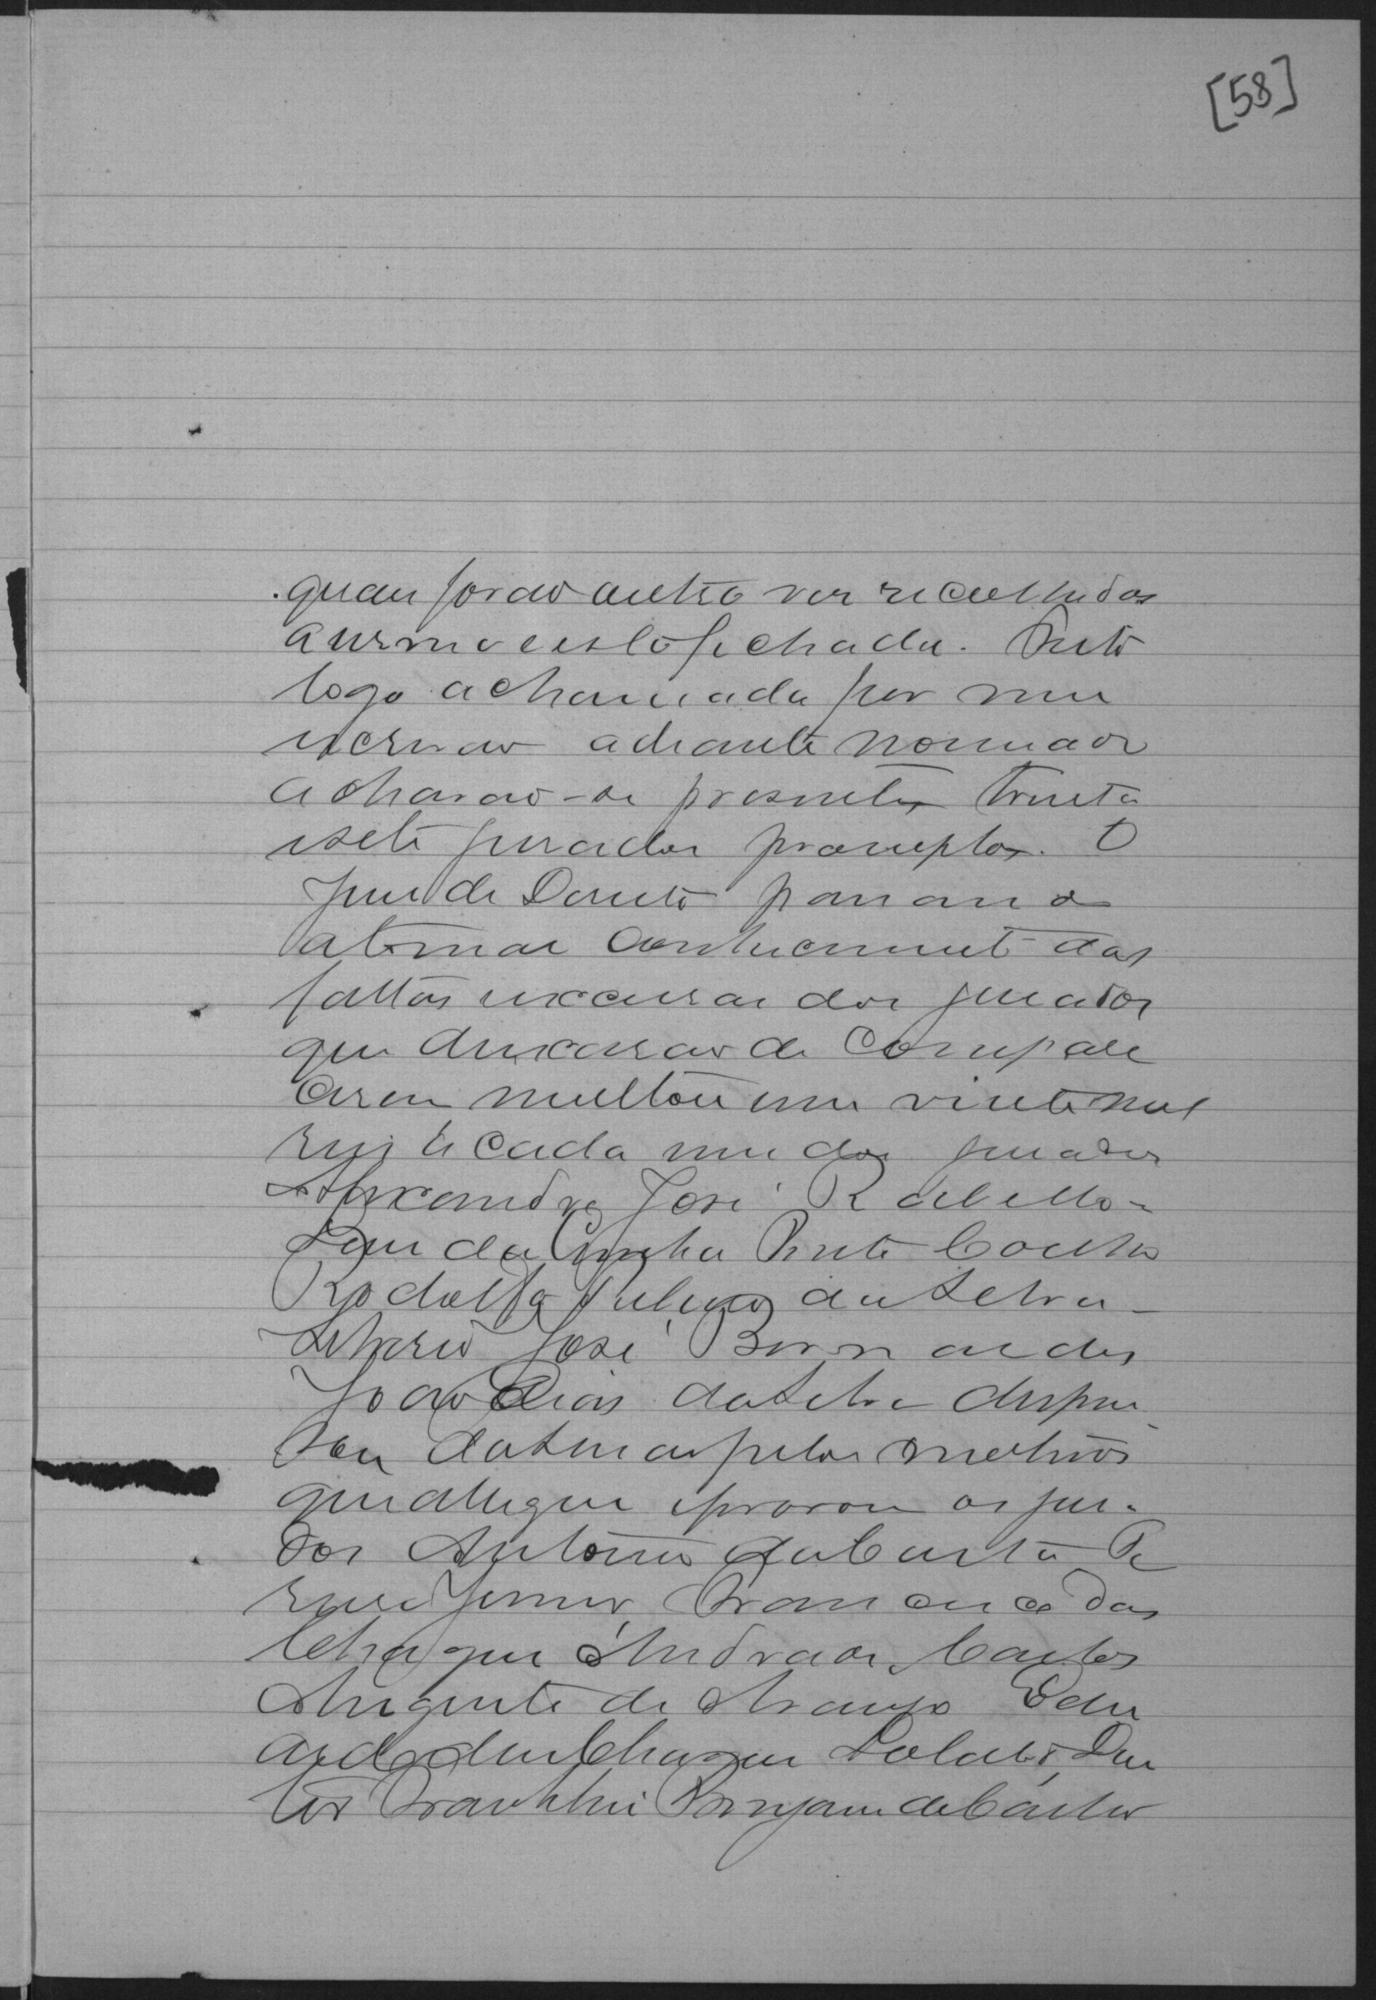 [58]
quaes forão outra vez recolhidas
a urna e esta fechada. Feita
logo a chamada por mim
escrivão adiante nomeado
acharão-se presentes trinta
e sete jurados promptos. O
Juiz de Direito passando
a tomar conhecimento das
faltas e excusas dos jurados
que deixarão de compare
cerem multou em vinte mil
reis a cada um dos jurados
Alexandre José Rabello-
da Cunha Pinto Coelho
Rodolfo da Silva-
José Bernardes
João Dias da Silva dispen
sou da pelos motivos
que allegou e provou os jura
dos Antonio da Costa Pe
reira Junior, Francisco das
Chagas Andrade, Carlos
Augusto de Araujo Edu
ardo das Chagas
Franklin Benjamin de Castro